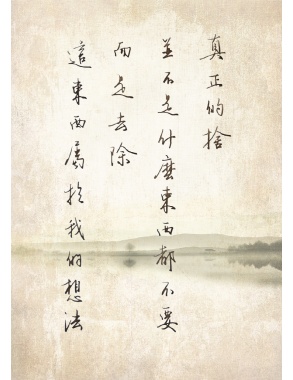 真正的捨
並不是什麼東西都不要
而是去除
這東西屬於我的想法